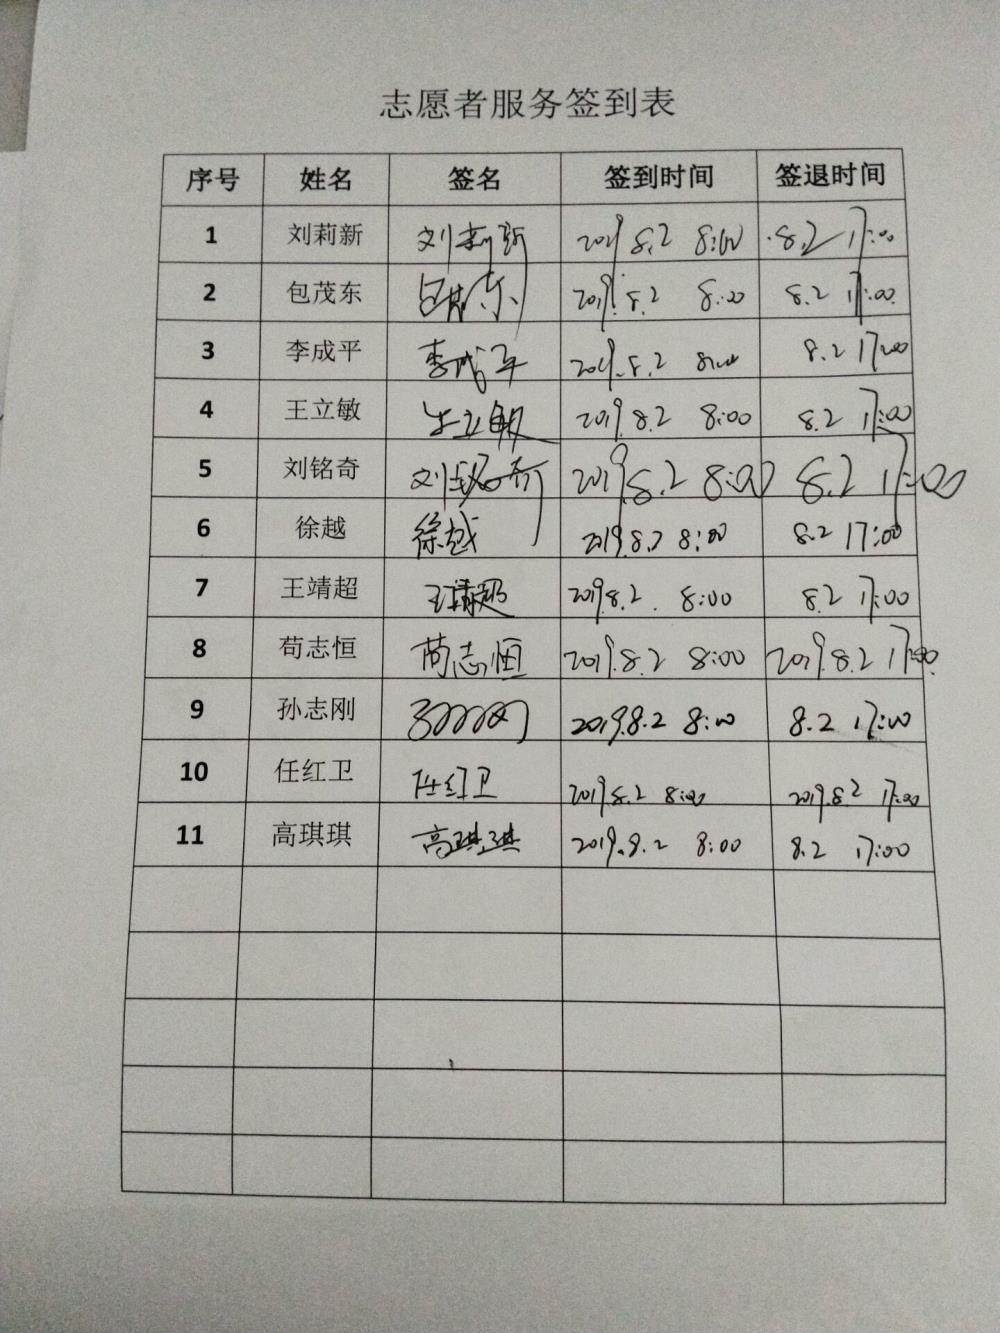 志愿者服务签到表
序号 姓名 签名 签到时间 签退时间
1 刘莉新 刘莉新 2019 8.2 8:00 8.2 17:00
2 包茂东 包茂东 2019.8.2 8:00 8.2 17:00
3 李成平 李成平 2019.8.2 8:00 8.2 17:00
4 王立敏 王立敏 2019.8.2 8:00 8.2 17:00
5 刘铭奇 刘铭奇 2019.8.2 8:00 8.2 17:00
6 徐越 徐越 2019.8.2 8:00 8.2 17:00
7 王靖超 王靖超 2019.8.2. 8:00 8.2 17:00
8 苟志恒 苟志恒 2019.8.2 8:00 2019.8.2 17:00
9 孙志刚 2019.8.2 8:00 8.2 17:00
10 任红卫 任红卫 2019.8.2 8:00 2019.8.2 17:00
11 高琪琪 高琪琪 2019.8.2 8:00 8.2 17:00